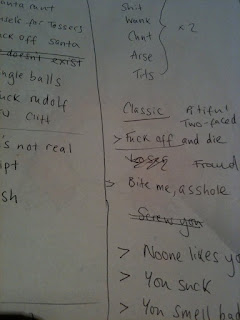 nsels for Tossers
ck off santa
doesn't exist
ngle balls
uck rudolf
Clift
's not real
ipt
sh
Shit
Wank
Cunt
Arse
Tits
x 2
Classic
Pitiful
Two-faced
> Fuck off and die
Fraud
> Bite me, asshole
Screw you
> Noone likes yo
> You suck
> You smell bad